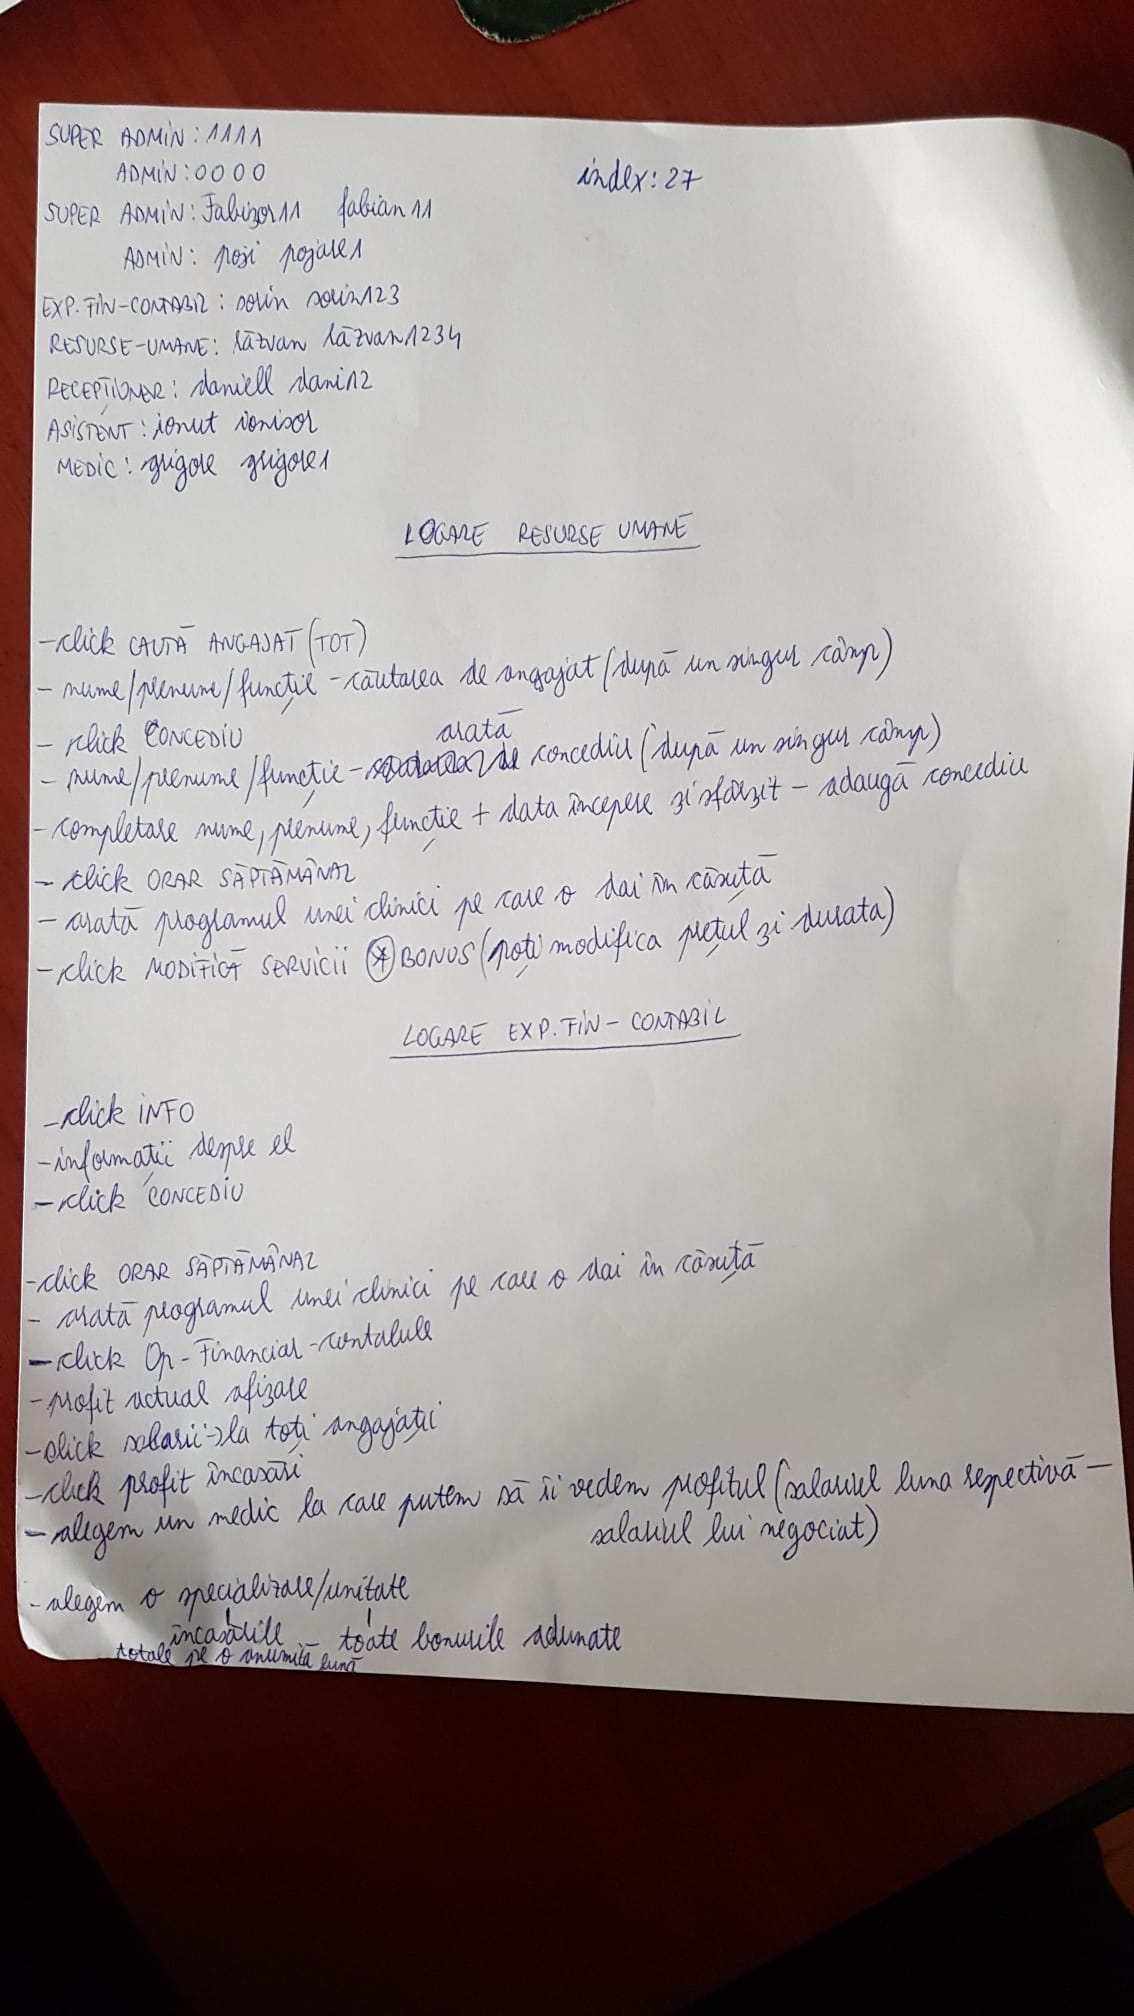 SUPER ADMIN: 1111
ADMIN: 0000
index: 27
SUPER ADMIN: Fabizor11 fabian11
ADMIN: poji pojare1
EXP. FIN-CONTABIL: sorin sorin123
RESURSE-UMANE: răzvan răzvan1234
RECEPȚIONER: daniell dani12
ASISTENT: ionut ionisor
MEDIC: grigore grigore1
LOGARE RESURSE UMANE
-click CAUTĂ ANGAJAT (TOT)
- nume/prenume/funcție - căutarea de angajat (după un singur câmp)
- click CONCEDIU
arată
- nume/prenume/funcție - concediu (după un singur câmp)
- completare nume, prenume, funcție + data începere și sfârșit - adaugă concediu
- click ORAR SĂPTĂMÂNAL
- arată programul unei clinici pe care o dai în căsuță
- click MODIFICĂ SERVICII * BONUS (poți modifica prețul și durata)
LOGARE EXP. FIN - CONTABIL
-click INFO
-informații despre el
-click CONCEDIU
-click ORAR SĂPTĂMÂNAL
- arată programul unei clinici pe care o dai în căsuță
-click Op-Financial-contabile
-profit actual afișare
-click salarii->la toți angajații
-click profit încasări
-alegem un medic la care putem să îi vedem profitul (salariul luna respectivă -
salariul lui negociat)
-alegem o specializare/unitate
încasările toate bonurile adunate
totale pe o anumită lună